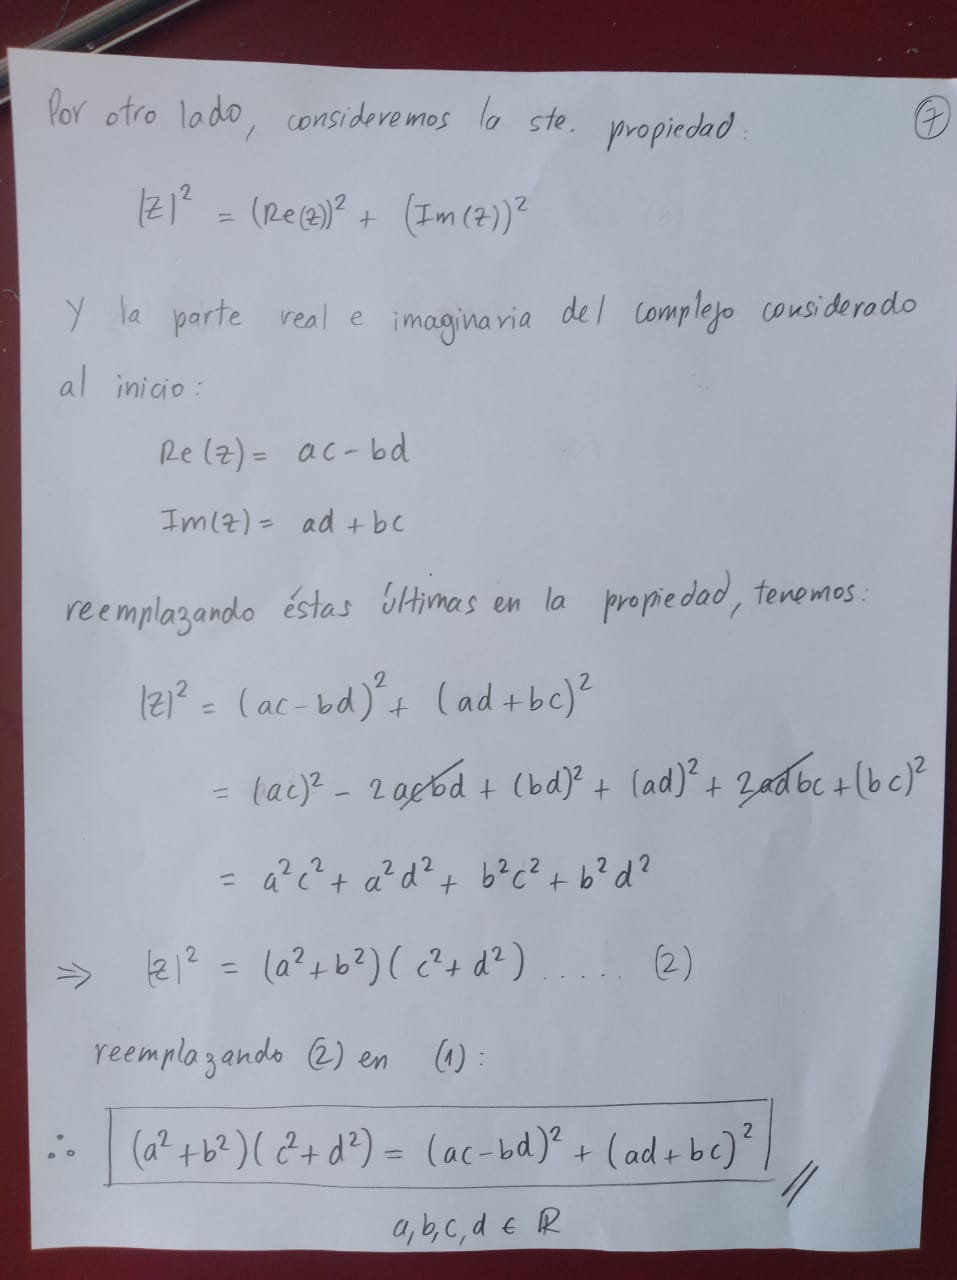 Por otro lado, consideremos la ste. propiedad:
7
|z|² = (Re(z))² + (Im(z))²
Y la parte real e imaginaria del complejo considerado
al inicio:
Re(z) = ac - bd
Im(z) = ad + bc
reemplazando éstas últimas en la propiedad, tenemos:
|z|² = (ac - bd)² + (ad + bc)²
= (ac)² - 2acbd + (bd)² + (ad)² + 2adbc + (bc)²
= a²c² + a²d² + b²c² + b²d²
⇒ |z|² = (a² + b²)(c² + d²) ..... (2)
reemplazando (2) en (1):
∴ (a² + b²)(c² + d²) = (ac - bd)² + (ad + bc)² //
a, b, c, d ∈ ℝ